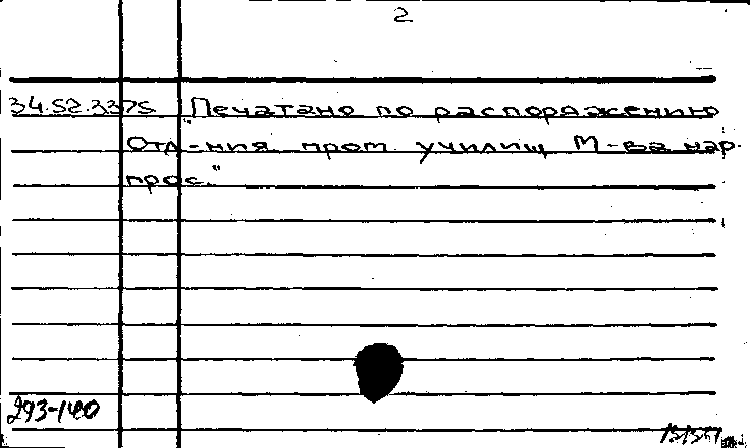 2
34.52.3375 "Печатано по распоряжению
Отд-ния пром. училищ М-ва нар.
прос."
293-140